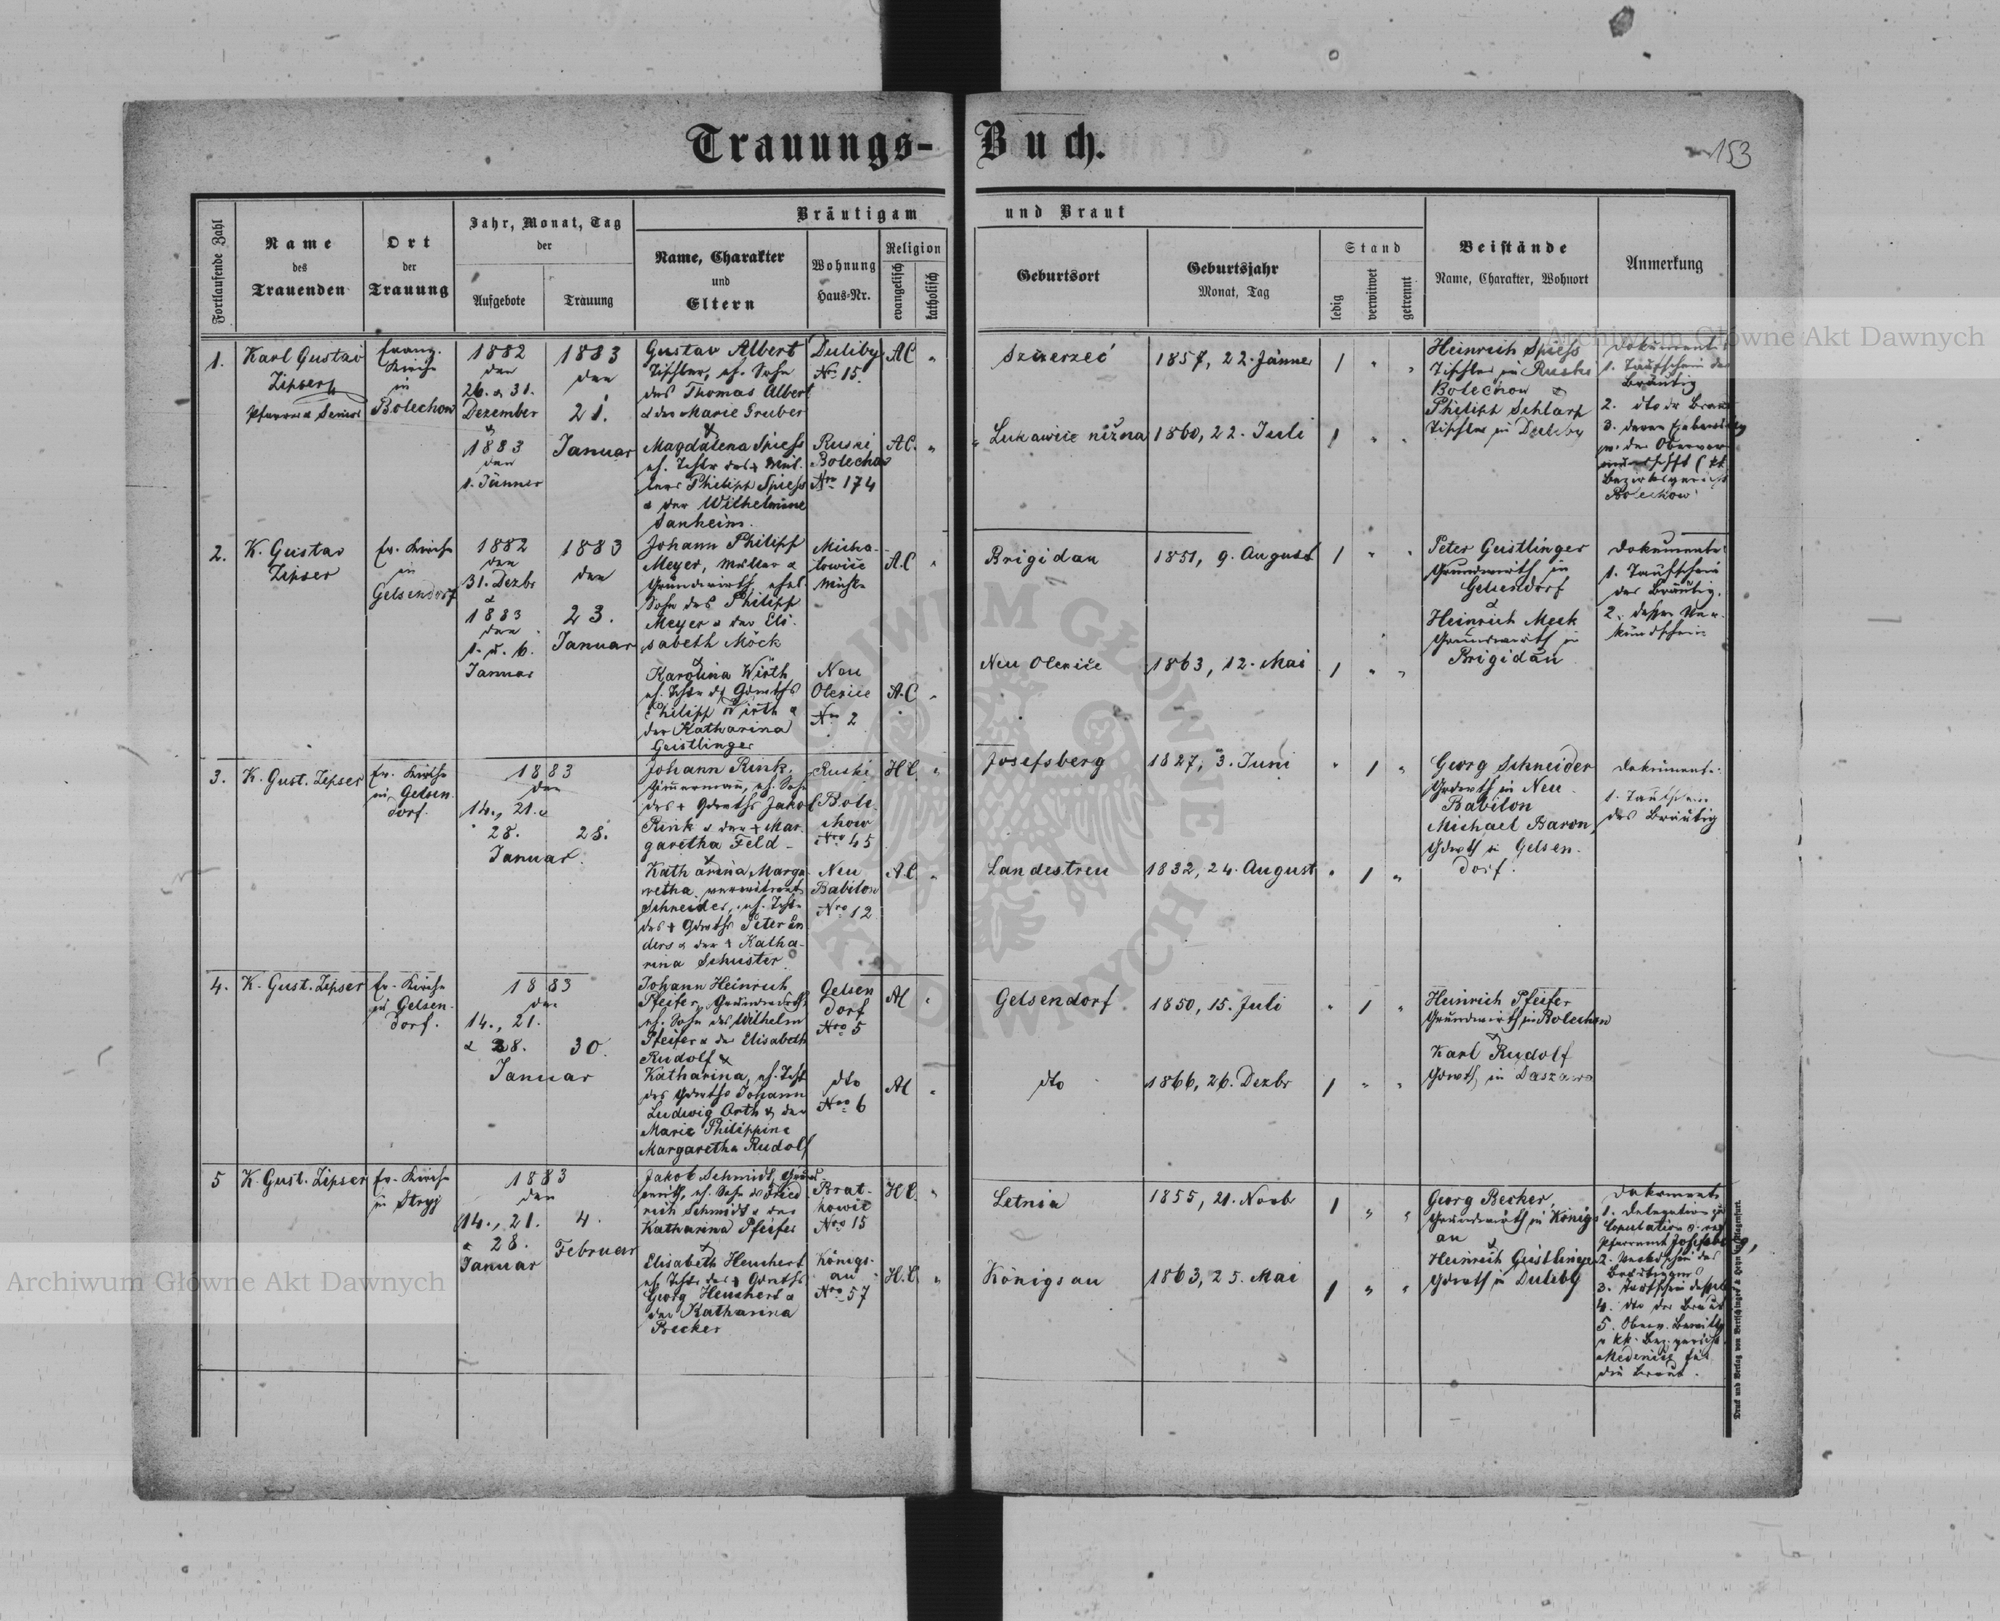 Trauungs-Buch.
153
Fortlaufende Zahl
Name des Trauenden
Ort der Trauung
Jahr, Monat, Tag der
Aufgebote
Trauung
Bräutigam und Braut
Name, Charakter und Eltern
Wohnung Haus-Nr.
Religion
evangelisch
katholisch
Geburtsort
Geburtsjahr Monat, Tag
Stand
ledig
verwitwet
getrennt
Beistände
Name, Charakter, Wohnort
Anmerkung
1.
Karl Gustav
Zipser
Pfarrer & Senior
Evang.
Kirche
in
Bolechow
1882
den
26. & 31.
Dezember
&
1883
den
1. Jänner
1883
den
21.
Januar
Gustav Albert
Tischler, eh. Sohn
des Thomas Albert
& der Marie Gruber
&
Magdalena Spiess
eh. Tochter des +
Philipp Spiess
& der Wilhelmine
Sanheim.
Duliby
Nro 15.
Ruski
Bolechow
Nro 174
AC "
AC. "
Szczerzec
1857, 22. Jänner
1 " "
Lukawice nižna
1860, 22. Juli
1 " "
Heinrich Spiess
Tischler in Ruski
Bolechow &
Philipp Schlarp
Tischler in Duliby
Dokumente:
1. Taufschein des
Bräutig.
2. dto der Braut
3. deren
Bolechow
2.
K. Gustav
Zipser
Ev. Kirche
in
Gelsendorf
1882
den
31. Dezbr
&
1883
den
1. u. 6.
Januar
1883
den
23.
Januar
Johann Philipp
Meyer, Müller &
Grundwirth, ehel.
Sohn des Philipp
Meyer & der Eli-
sabeth Möck
&
Karolina Wirth
eh. Tochter des Gdwths
Philipp Wirth &
der Katharina
Geistlinger
Micha-
lowice
Mühle
Neu
Olexice
Nro 2
A.C "
A.C "
Brigidau
1851, 9. August
1 " "
Neu Olexice
1863, 12. Mai
1 " "
Peter Geistlinger
Grundwirth in
Gelsendorf
&
Heinrich Meck
Grundwirth in
Brigidau
Dokumente:
1. Taufschein
des Bräutig.
2. dessen Ver-
kündschein
3.
K. Gust. Zipser
Ev. Kirche
in Gelsen-
dorf.
1883
den
14., 21. &
28. 28.
Januar.
Johann Rink,
Zimmermann, eh. Sohn
des + Gdwths Jakob
Rink & der + Mar-
garetha Feld -
&
Katharina Marga-
retha verwitwete
Schneider, eh. Tochter
des + Gdwths Peter En-
ders & der + Katha-
rina Schuster.
Ruski
Bole-
chow
Nro 45
Neu
Babilon
Nro 12
H.C. "
A.C. "
Josefsberg
1827, 3. Juni
" 1 "
Landestreu
1832, 24. August
" 1 "
Georg Schneider
Gdwth in Neu-
Babilon
Michael Baron,
Gdwth in Gelsen-
dorf.
Dokumente:
1. Taufschein
des Bräutig
4.
K. Gust. Zipser
Ev. Kirche
in Gelsen-
dorf.
1883
den
14., 21.
& 28. 30.
Januar
Johann Heinrich
Pfeifer, Grundwirth,
eh. Sohn des Wilhelm
Pfeifer & der Elisabeth
Rudolf &
Katharina, eh. Tocht.
des Gdwths Johann
Ludwig Orth & der
Marie Philippine
Margaretha Rudolf
Gelsen
dorf
Nro 5
dto
Nro 6
AC "
AC "
Gelsendorf
1850, 15. Juli
" 1 "
dto
1866, 26. Dezbr
1 " "
Heinrich Pfeifer
Grundwirth in Bolechow
&
Karl Rudolf
Gdwth in Daszawa
5
K. Gust. Zipser
Ev. Kirche
in Stryj
1883
den
14., 21. 4.
& 28. Februar
Januar
Jakob Schmidt, Grund-
wirth, eh. Sohn des Fried-
rich Schmidt & der
Katharina Pfeifer
&
Elisabeth Heuchert
eh. Tochter des + Gdwths
Georg Heuchert &
der Katharina
Becker
Brat-
kowice
Nro 15
Königs-
au
Nro 57
H.C. "
H.C. "
Letnia
1855, 21. Novb
1 " "
Königsau
1863, 25. Mai
1 " "
Georg Becker,
Grundwirth in Königs-
au &
Heinrich Geistlinger
Gdwth in Duliby
Dokumente
1. Delegation zur
Copulation v. ev.
Pfarramt Josefsberg,
2. Verkdschein des
Bräutigams
3. Taufschein desselben
4. dto der Braut
5. Oberv. Bewillg
v. kk. Bez. gericht
Medenice für
die Braut.
Druck und Verlag von Bertschinger & Heyn in Klagenfurt.
Archiwum Główne Akt Dawnych
Archiwum Główne Akt Dawnych
ARCHIWUM GŁÓWNE AKT DAWNYCH